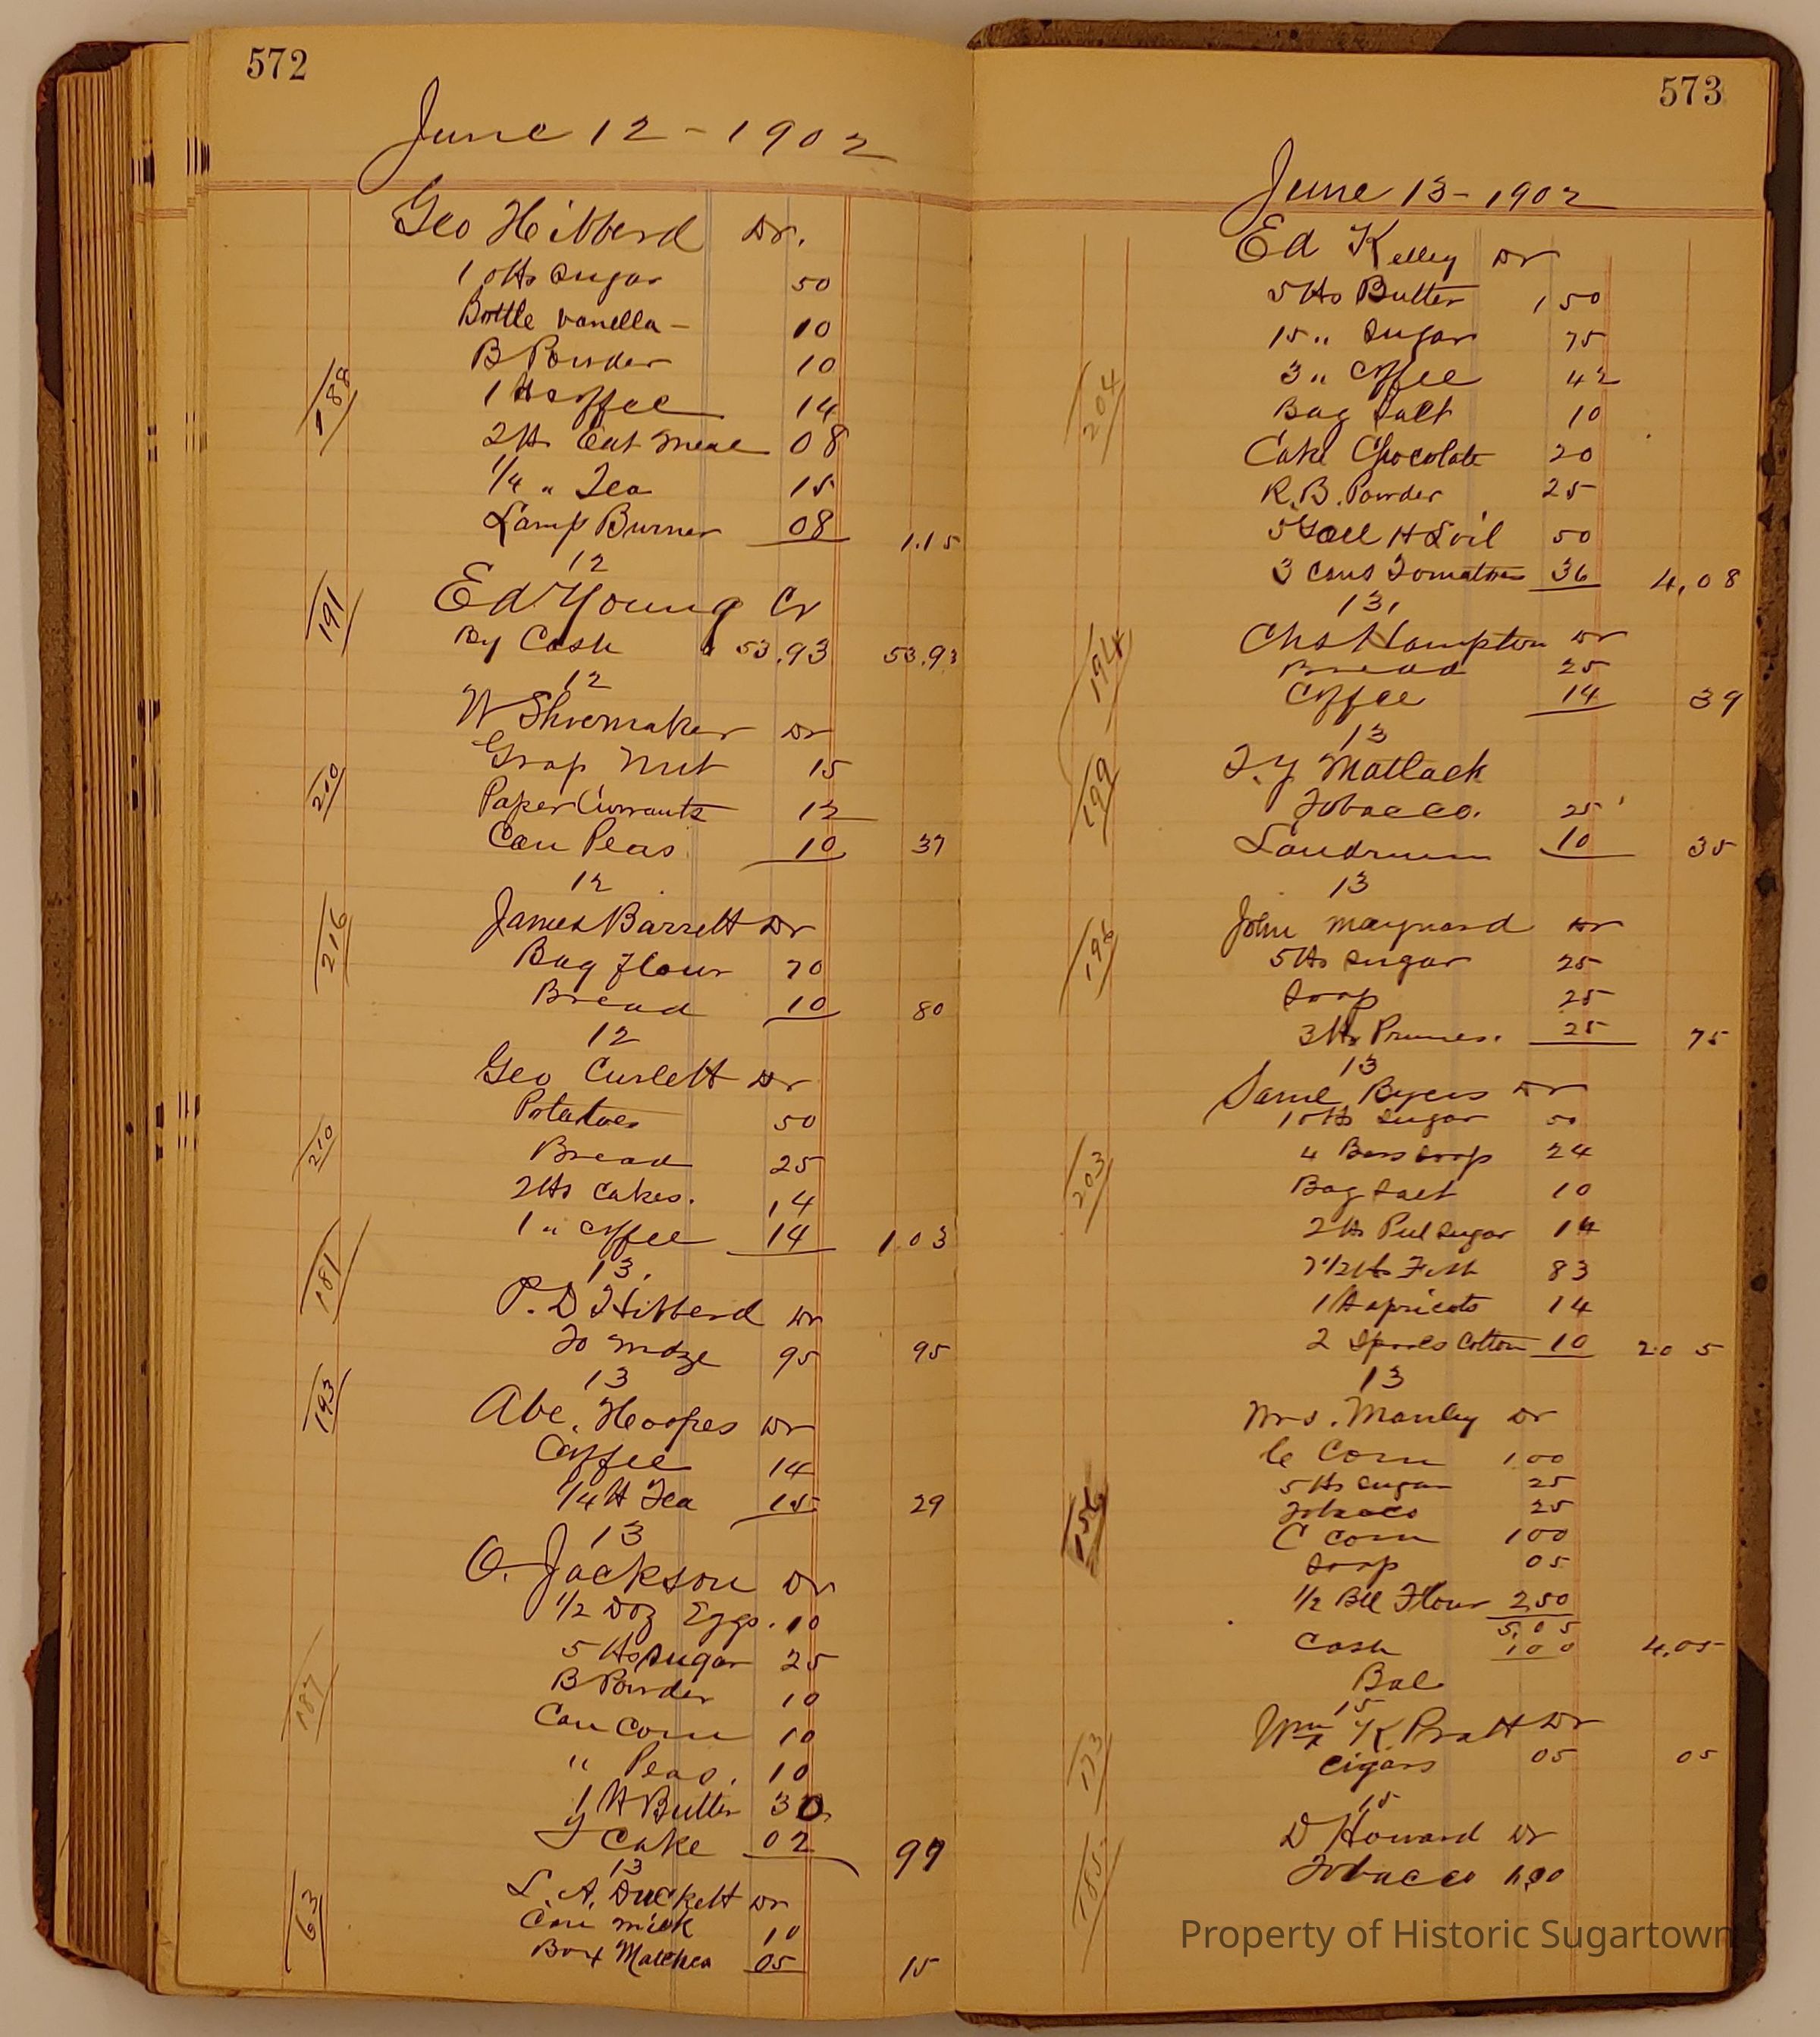 572
June 12 - 1902
Geo Hibberd Dr.
10 lbs Sugar 50
Bottle vanella - 10
B Powder 10
188
1 lb coffee 14
2 lb Oat meal 08
1/4 " Tea 15
Lamp Burner 08 1.15
12
191
Ed Young Cr
By Cash 53.93 53.93
12
W Shoemaker Dr
Grap Nut 15
210
Paper Currants 12
Can Peas 10 37
12
216
James Barrett Dr
Bag flour 70
Bread 10 80
12
Geo Curlett Dr
Potatoes 50
210
Bread 25
2 lbs Cakes. 14
1 " coffee 14 1.03
181
13.
P. D Hibberd Dr
To mdze 95 95
193
13
Abe. Hoopes Dr
Coffee 14
1/4 lb Tea 15 29
13
O. Jackson Dr
1/2 Doz Eggs. 10
5 lbs Sugar 25
187
B Powder 10
Can Corn 10
" Peas. 10
1 lb Butter 30
Y Cake 02 97
13
63
L. A. Duckett Dr
Can milk 10
Box Matches 05 15
573
June 13 - 1902
Ed Kelley Dr
5 lbs Butter 1 50
15 " Sugar 75
3 " Coffee 42
204
Bag Salt 10
Cake Chocolate 20
R. B. Powder 25
5 Gall H L oil 50
3 cans Tomatoes 36 4,08
13,
194
Chs Hampton Dr
Bread 25
Coffee 14 39
13
199
T. Y Matlack
Tobacco. 25
Laudnum 10 35
13
196
John Maynard Dr
5 lbs Sugar 25
Soap 25
3 lbs Prunes. 25 75
13
Saml Byers Dr
10 lbs Sugar 50
203
4 Bars Soap 24
Bag Salt 10
2 lbs Pul Sugar 14
7 1/2 lbs Fish 83
1 lb apricots 14
2 Spools Cotton 10 20 5
13
Mrs. Manley Dr
C Corn 1 00
5 lbs Sugar 25
156
Tobacco 25
C corn 1 00
Soap 05
1/2 Bll Flour 2,50
5,05
Cash 1 00 4,05
Bal
15
173
Wm K Pratt Dr
Cigars 05 05
15
185
D Howard Dr
Tobacco 1,00
Property of Historic Sugartown